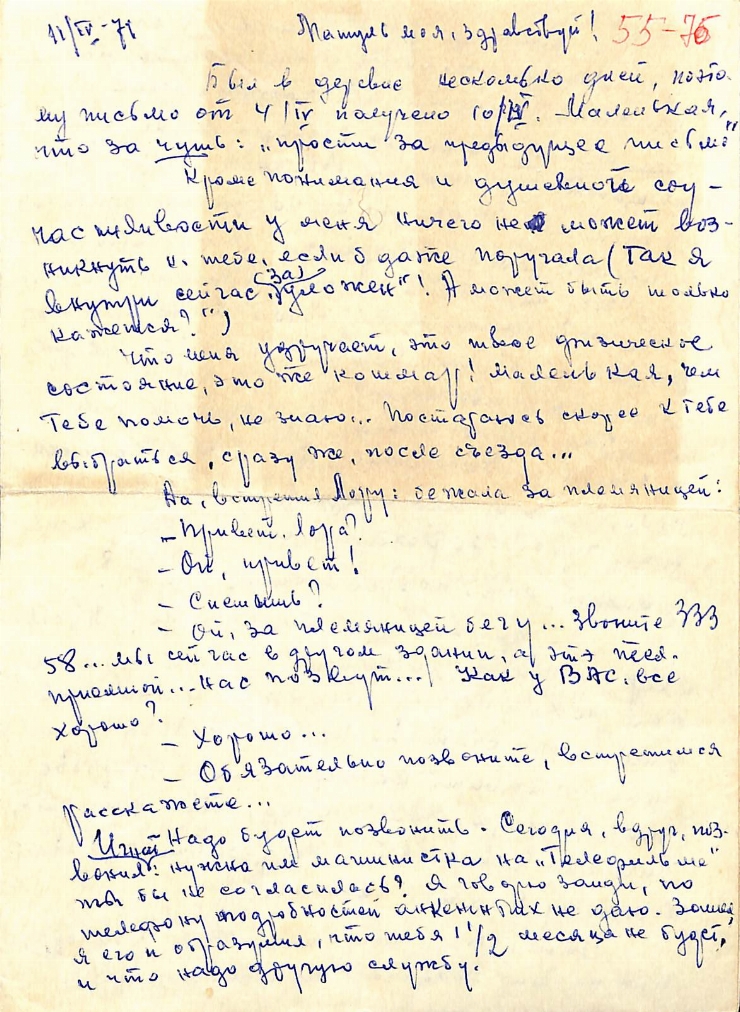 11/IV-71 Матуль моя, здравствуй! 55-76
Был в деревне несколько дней, поэто
му письмо от 4/IV получено 10/IV. Маленькая,
что за чушь: „прости за предыдущее письмо"
Кроме понимания и душевной соу-
частливости у меня ничего не может воз-
никнуть к тебе, если б даже поручала (Так я
внутри сейчас „(за) уложен"! А может быть только
кажется?")
Что меня удручает, это твое физическое
состояние, это же кошмар! Маленькая, чем
тебе помочь, не знаю... Постараюсь скорее к тебе
выбраться, сразу же, после съезда...
Да, встретил Лору: бежала за племянницей:
- Привет, Лора?
- Ой, привет!
- Спешишь?
- Ой, за племянницей бегу... Звоните 333
58... мы сейчас в другом здании, а это тел.
приемной... нас позовут... Как у ВАС, все
хорошо?
- Хорошо...
- Обязательно позвоните, встретимся
расскажете...
Надо будет позвонить. Сегодня, вдруг, поз-
вонил: нужна им машинистка на „Телефильме"
ты бы не согласилась? Я говорю зайди, по
телефону подробностей анкетных не даю. Зашел,
я его и образумил, что тебя 1 1/2 месяца не будет,
и что надо другую службу.